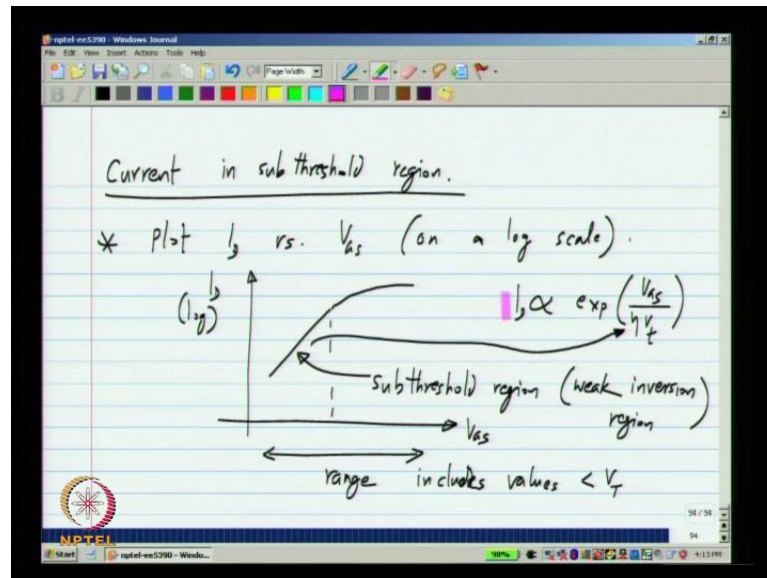 nptel-ee5390 - Windows Journal
File Edit View Insert Actions Tools Help
Page Width
B I
Current in subthreshold region.
* Plot I_D vs. V_GS (on a log scale).
I_D
(log)
I_D ∝ exp(V_GS / ηV_t)
subthreshold region (weak inversion region)
V_GS
range includes values < V_T
94 / 94
94
NPTEL
Start
nptel-ee5390 - Windo...
98%
4:13 PM